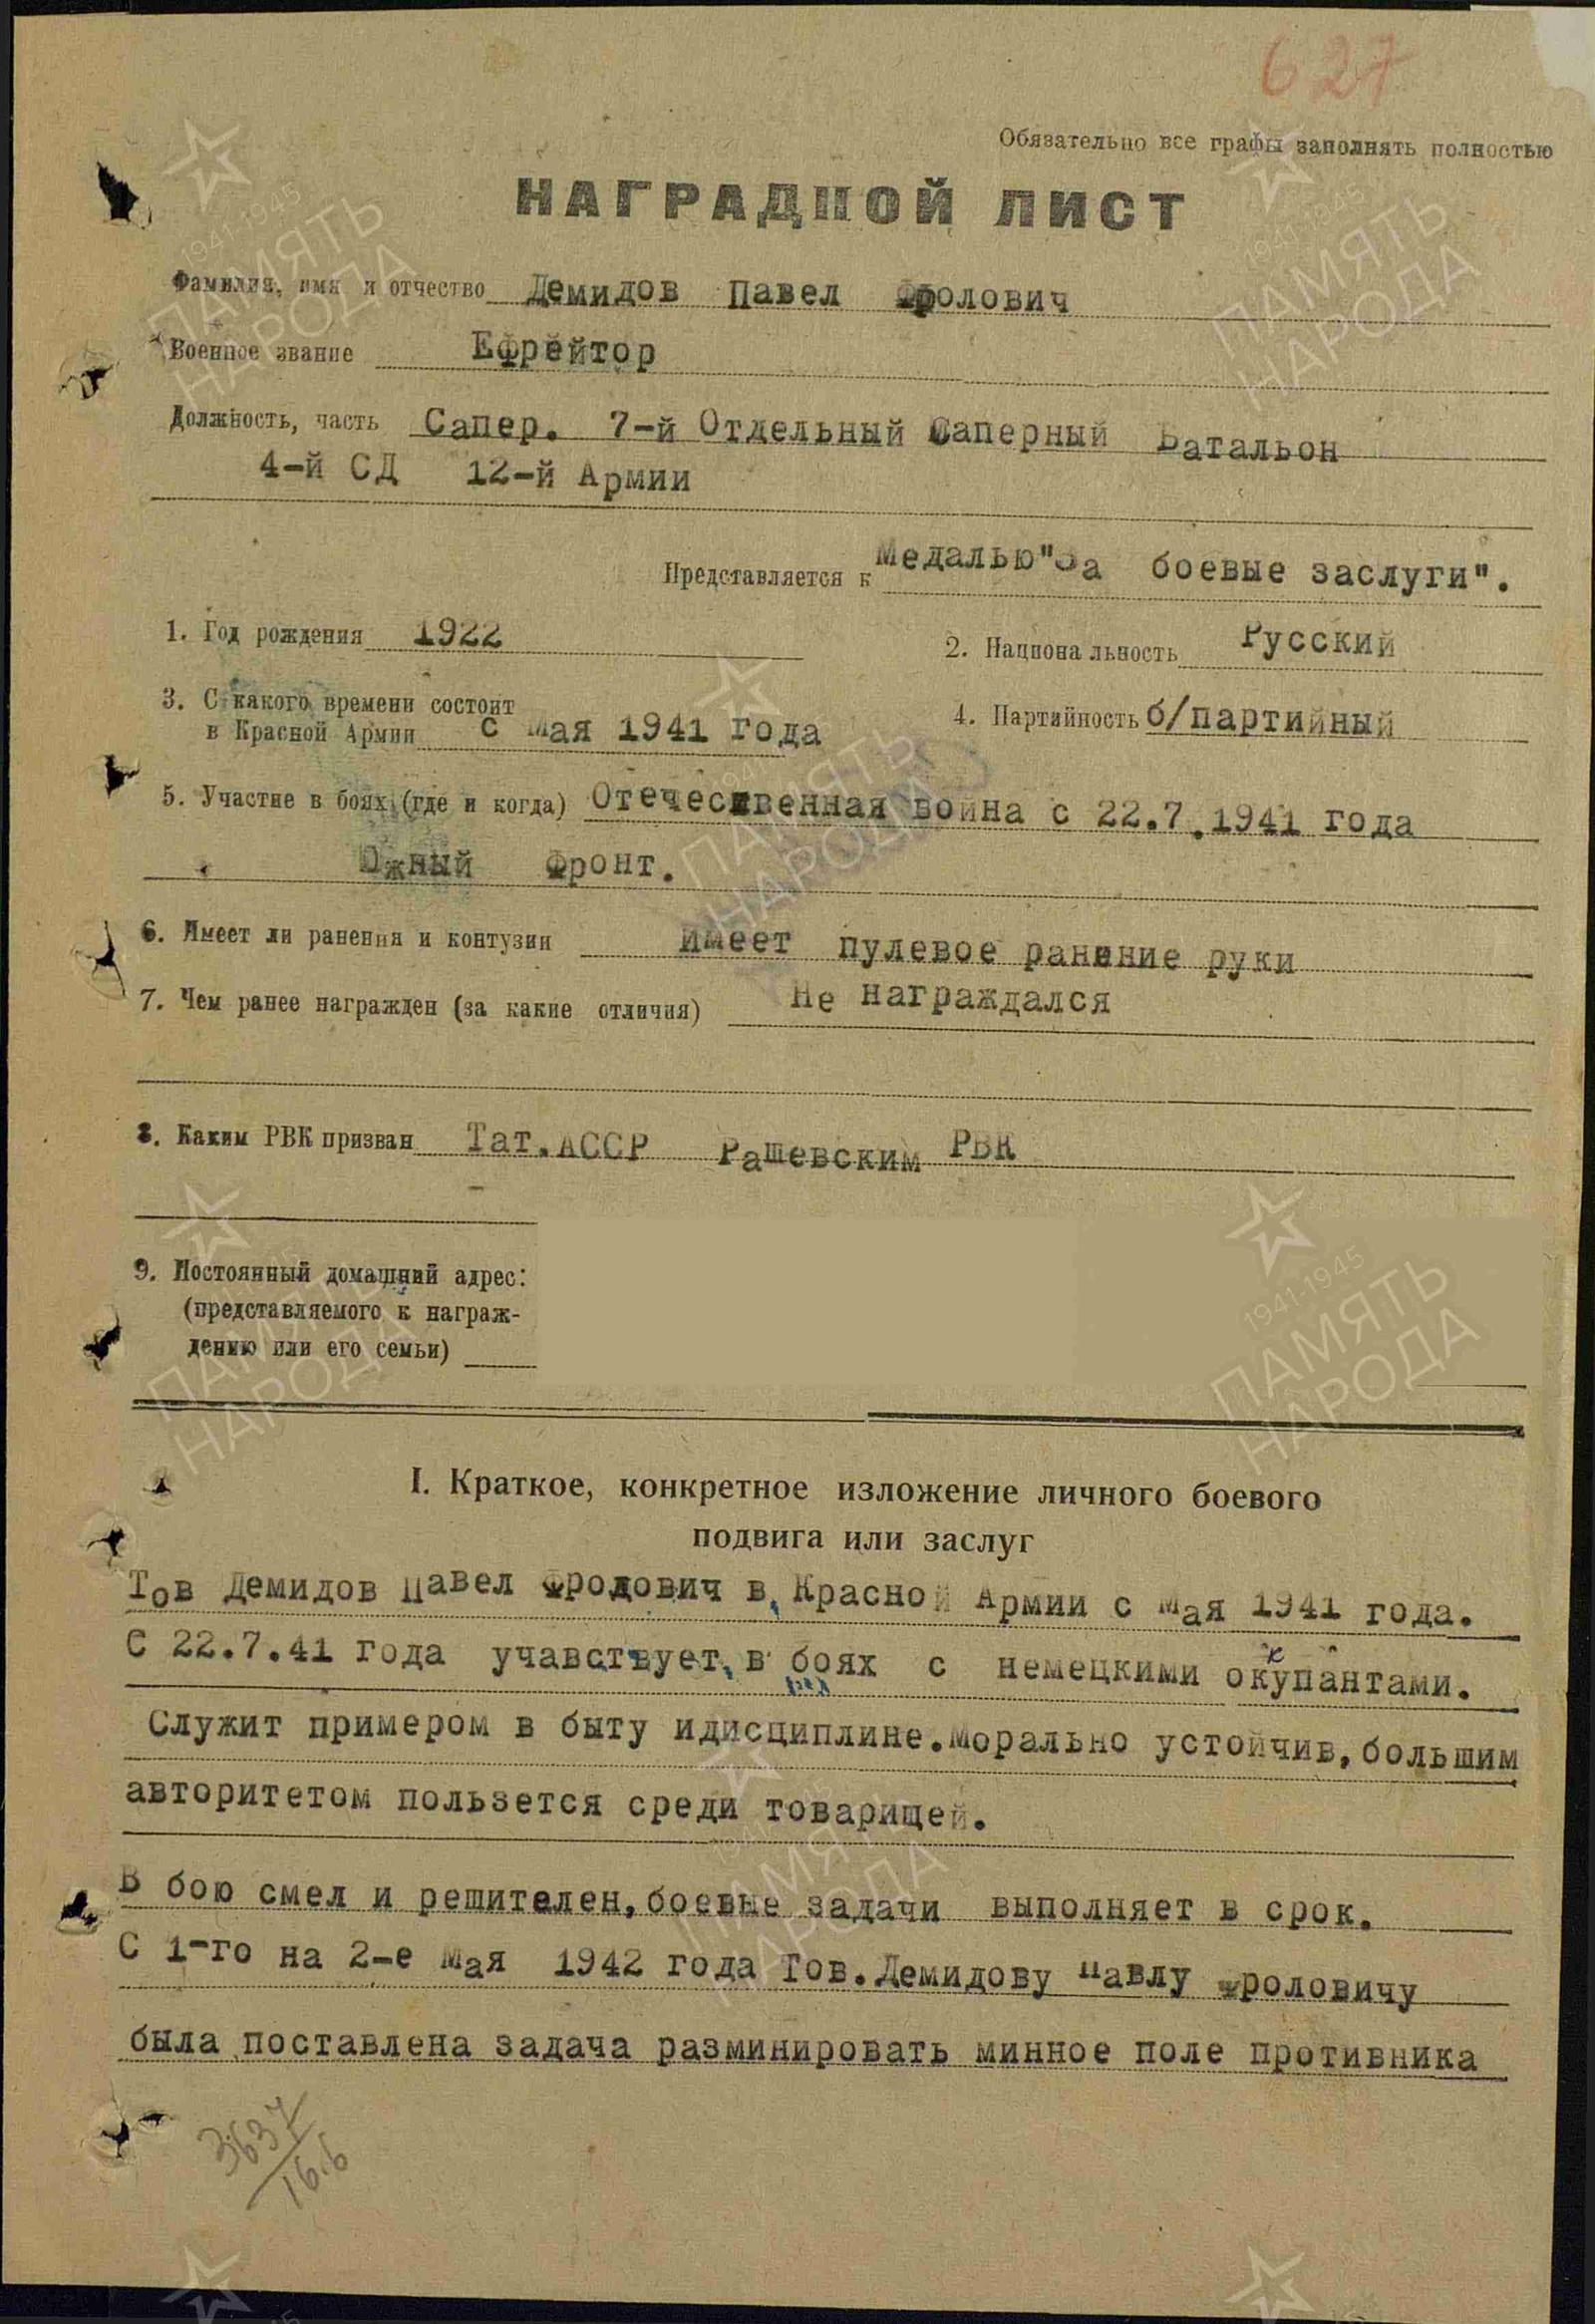 627
Обязательно все графы заполнять полностью
НАГРАДНОЙ ЛИСТ
Фамилия, имя и отчество Демидов Павел Фролович
Военное звание Ефрейтор
Должность, часть Сапер. 7-й Отдельный Саперный Батальон
4-й СД 12-й Армии
Представляется к Медалью "За боевые заслуги".
1. Год рождения 1922
2. Национальность Русский
3. С какого времени состоит
в Красной Армии с мая 1941 года
4. Партийность б/партийный
5. Участие в боях (где и когда) Отечественная война с 22.7.1941 года
Южный Фронт.
6. Имеет ли ранения и контузии имеет пулевое ранение руки
7. Чем ранее награжден (за какие отличия) Не награждался
8. Каким РВК призван Тат.АССР Рашевским РВК
9. Постоянный домашний адрес:
(представляемого к награж-
дению или его семьи)
I. Краткое, конкретное изложение личного боевого
подвига или заслуг
Тов Демидов Павел Фролович в Красной Армии с мая 1941 года.
С 22.7.41 года учавствует в боях с немецкими окупантами.
Служит примером в быту идисциплине.Морально устойчив,большим
авторитетом пользется среди товарищей.
В бою смел и решителен,боевые задачи выполняет в срок.
С 1-го на 2-е мая 1942 года Тов.Демидову Павлу Фроловичу
была поставлена задача разминировать минное поле противника
3637
16.6
1941-1945
ПАМЯТЬ
НАРОДА